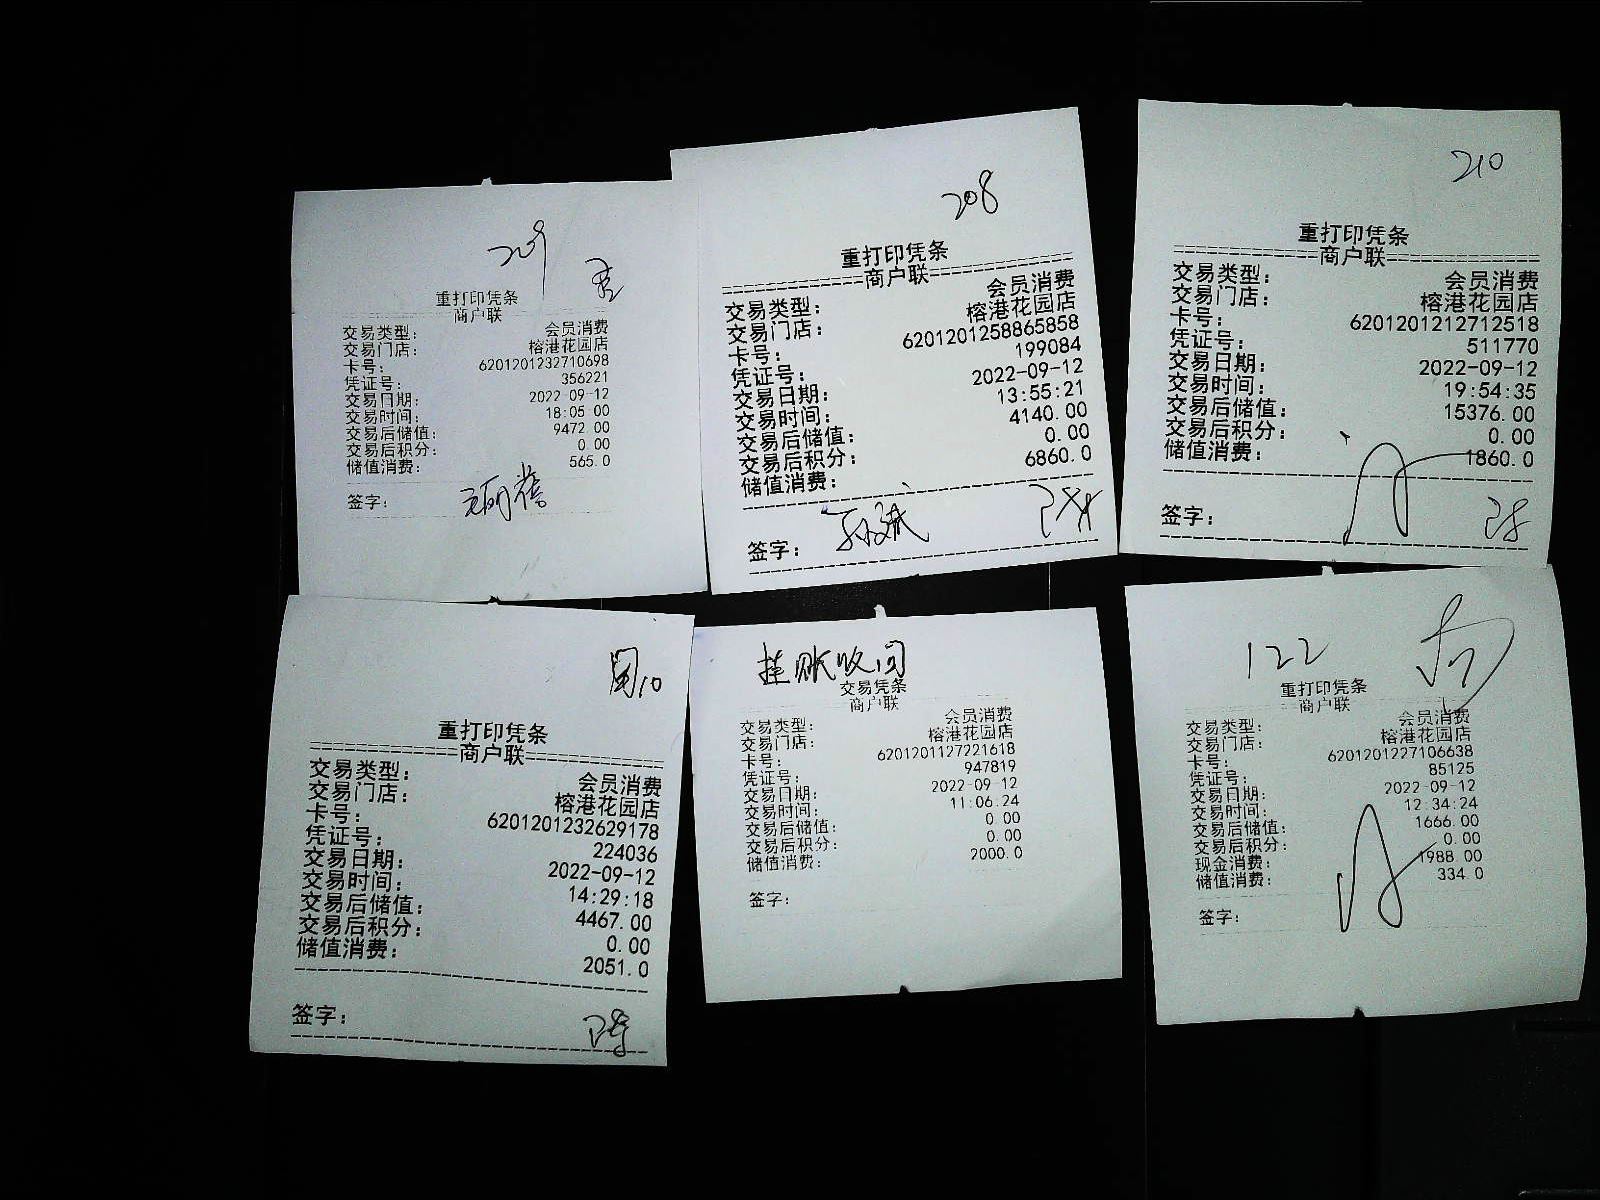 209
重打印凭条
商户联
交易类型: 会员消费
交易门店: 榕港花园店
卡号: 6201201232710698
凭证号: 356221
交易日期: 2022-09-12
交易时间: 18:05:00
交易后储值: 9472.00
交易后积分: 0.00
储值消费: 565.0
签字:
208
重打印凭条
商户联
交易类型: 会员消费
交易门店: 榕港花园店
卡号: 6201201258865858
凭证号: 199084
交易日期: 2022-09-12
交易时间: 13:55:21
交易后储值: 4140.00
交易后积分: 0.00
储值消费: 6860.0
签字:
210
重打印凭条
商户联
交易类型: 会员消费
交易门店: 榕港花园店
卡号: 6201201212712518
凭证号: 511770
交易日期: 2022-09-12
交易时间: 19:54:35
交易后储值: 15376.00
交易后积分: 0.00
储值消费: 1860.0
签字:
重打印凭条
商户联
交易类型: 会员消费
交易门店: 榕港花园店
卡号: 6201201232629178
凭证号: 224036
交易日期: 2022-09-12
交易时间: 14:29:18
交易后储值: 4467.00
交易后积分: 0.00
储值消费: 2051.0
签字:
挂账收回
交易凭条
商户联
交易类型: 会员消费
交易门店: 榕港花园店
卡号: 6201201127221618
凭证号: 947819
交易日期: 2022-09-12
交易时间: 11:06:24
交易后储值: 0.00
交易后积分: 0.00
储值消费: 2000.0
签字:
122
重打印凭条
商户联
交易类型: 会员消费
交易门店: 榕港花园店
卡号: 6201201227106638
凭证号: 85125
交易日期: 2022-09-12
交易时间: 12:34:24
交易后储值: 1666.00
交易后积分: 0.00
现金消费: 1988.00
储值消费: 334.0
签字: